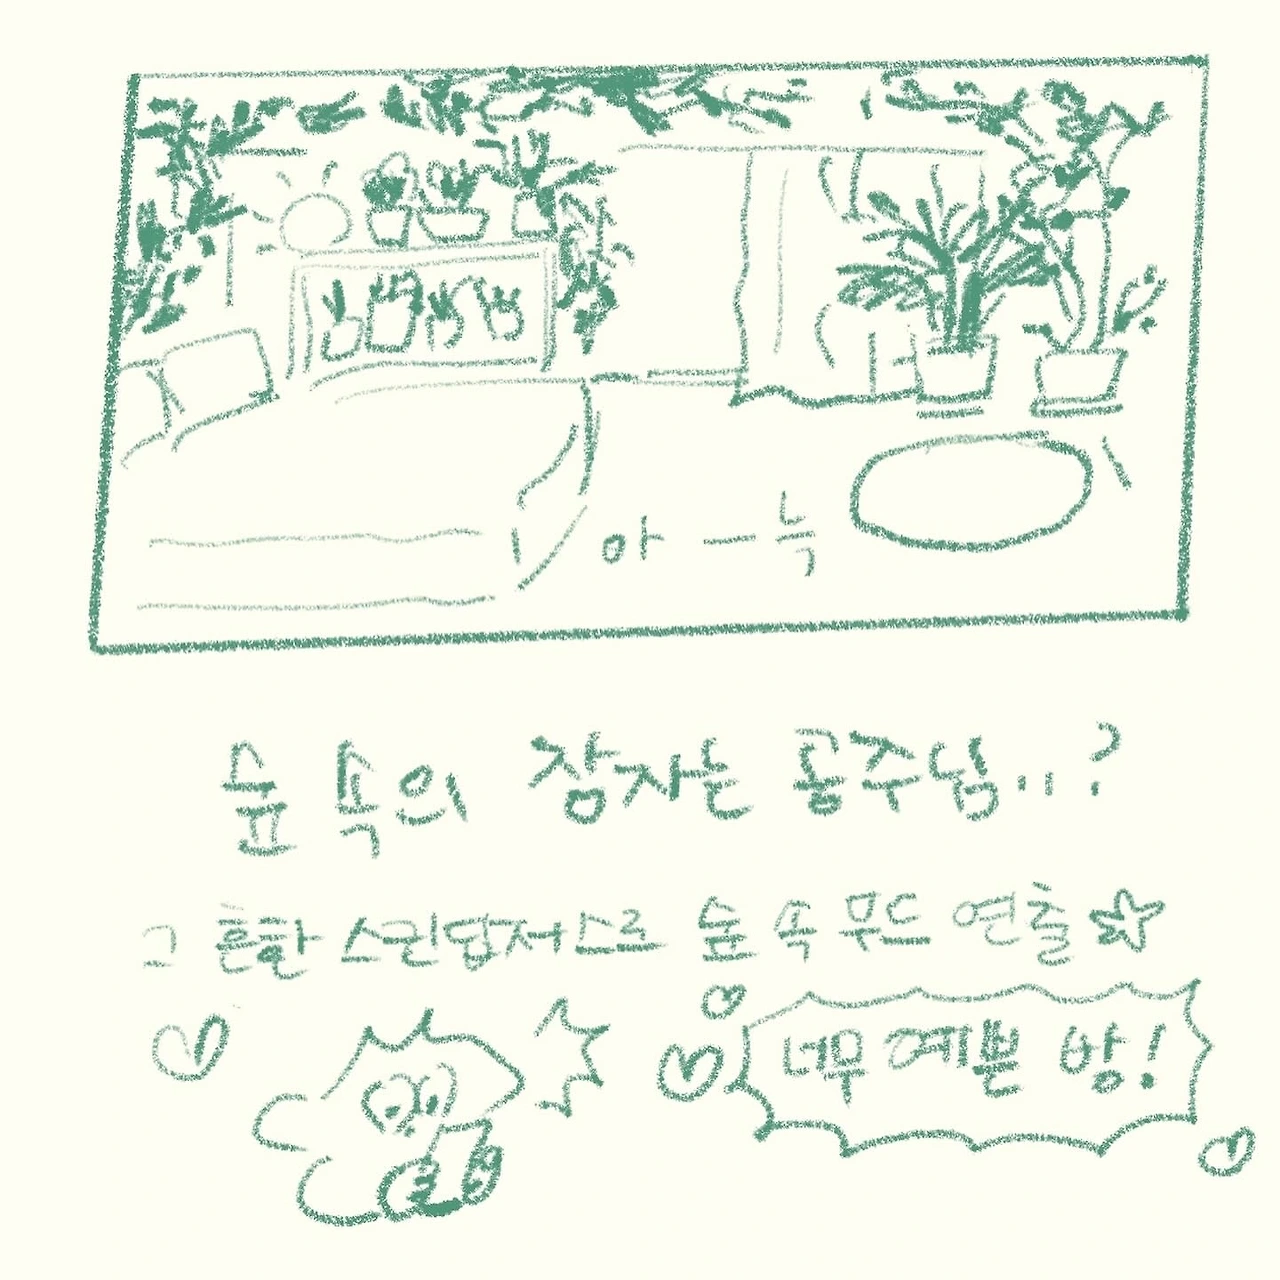 아 ー늑
숲 속의 잠자는 공주님...?
그 흔한 스킨답서스로 숲 속 무드 연출☆
너무 예쁜 방!